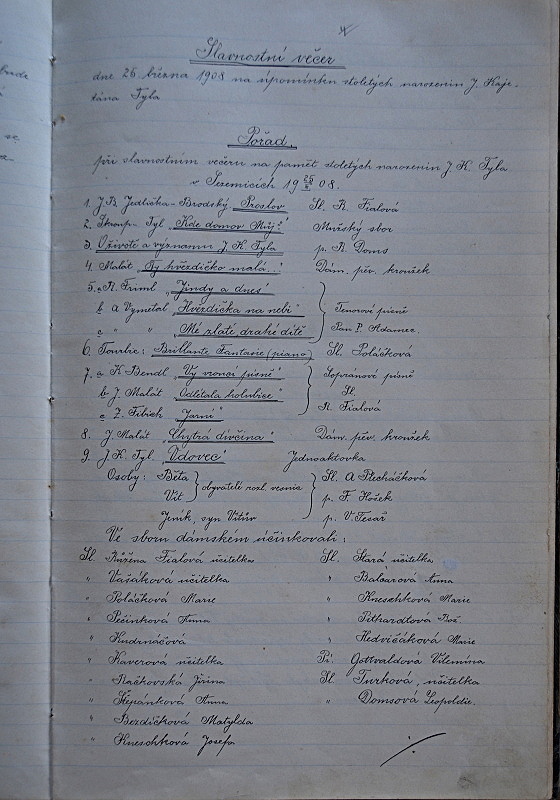 Slavnostní večer
dne 26. března 1908 na upomínku stoletých narozenin J. Kaje-
tána Tyla
Pořad
při slavnostním večeru na paměť stoletých narozenin J. K. Tyla
v Sezemicích 19 08.
1. J. B. Jedlička-Brodský Proslov Sl. R. Fialová
2. Tyl „Kde domov Můj?" Mužský sbor
3. O životě a významu J. K. Tyla p. R. Doms
4. Malát „Ty hvězdičko malá... Dám. pěv. kroužek
5. a R. Friml „Jindy a dnes"
b A Vymetal „Hvězdička na nebi" Tenorové písně
c " " „Mé zlaté drahé dítě Pan P. Adamec.
6. Brillante Fantasie (piano) Sl. Poláčková
7. a K Bendl „Vy vroucí písně" Sopránové písně
b J. Malát „Odlétala holubice" Sl.
c Z. Fibich „Jarní" R. Fialová
8. J. Malát „Chytrá divčina" Dám. pěv. kroužek
9. J. K. Tyl „Vdovec" Jednoaktovka
Osoby: Běta Sl. A Plecháčková
Vít obyvatelé p. F. Hošek
Jeník, syn Vítův p. V. Tesař
Ve sboru dámském účinkovali:
Sl. Růžena Fialová učitelka Sl. Stará učitelka
" Vašáková učitelka " Anna
" Poláčková Marie " Kneschková Marie
" Pečinková Anna " Pithardtová Rož.
" Kudrnáčová " Hedvičáková Marie
" Kaverová učitelka Pí. Gottvaldová Vilemína
" Jiřina Sl. Turková, učitelka
" Štěpánková Anna " Domsová Leopoldie.
" Bezdíčková Matylda
" Kneschková Josefa